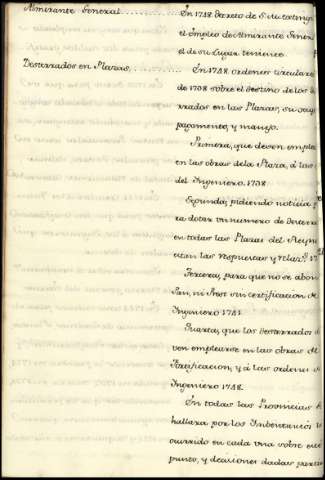 Almirante General.......... En 1748 Decreto de S. M. exting
el empleo de Almirante Gener
el de su Lugar teniente.
Desterrados en Plazas.......... En 1748 ordenes circulares
de 1708 sobre el destino de los
rrados en las Plazas, su
pagamento, y manejo.
Primera, que deven emple
en las obras de la Plaza, á las
del Ingeniero. 1708
Segunda, pidiendo noticia p
ra dotar un numero de
en todas las Plazas del Reyn
las respuestas y
Tercera, para que no se abon
Pan, ni Prest sin certificacion de
Ingeniero 1751
Quarta, que los Desterrados d
ven emplearse en las obras de
Fortificacion, y á las ordenes d
Ingeniero 1748.
En todas las Provincias
hallara por los Intendentes
ocurrido en cada una sobre este
punto, y decisiones dadas para